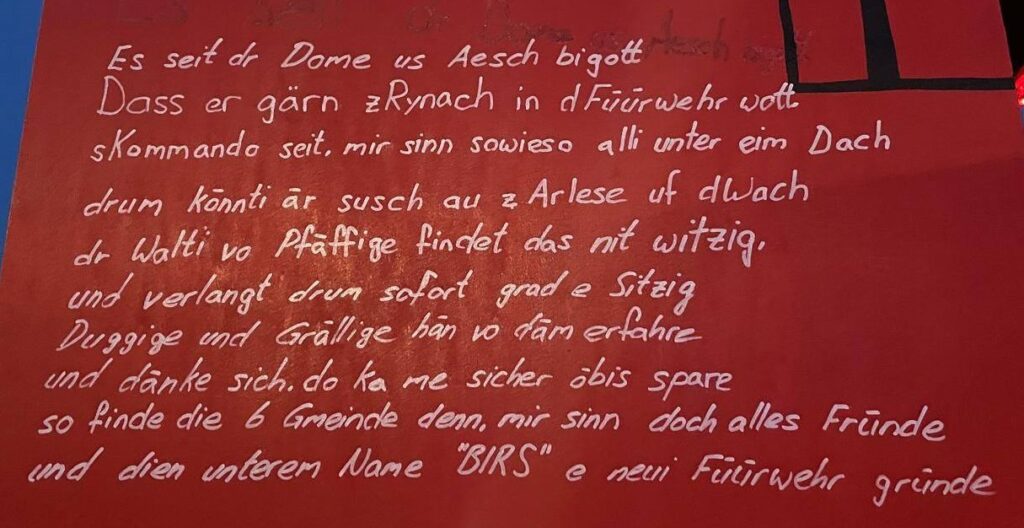 Es seit dr Dome us Aesch bigott
Dass er gärn zRynach in dFüürwehr wott
sKommando seit, mir sinn sowieso alli unter eim Dach
drum könnti är susch au z Arlese uf dWach
dr Walti vo Pfäffige findet das nit witzig,
und verlangt drum sofort grad e Sitzig
Duggige und Grällige hän vo däm erfahre
und dänke sich, do ka me sicher öbis spare
so finde die 6 Gmeinde denn, mir sinn doch alles Fründe
und dien unterem Name "BIRS" e neui Füürwehr gründe